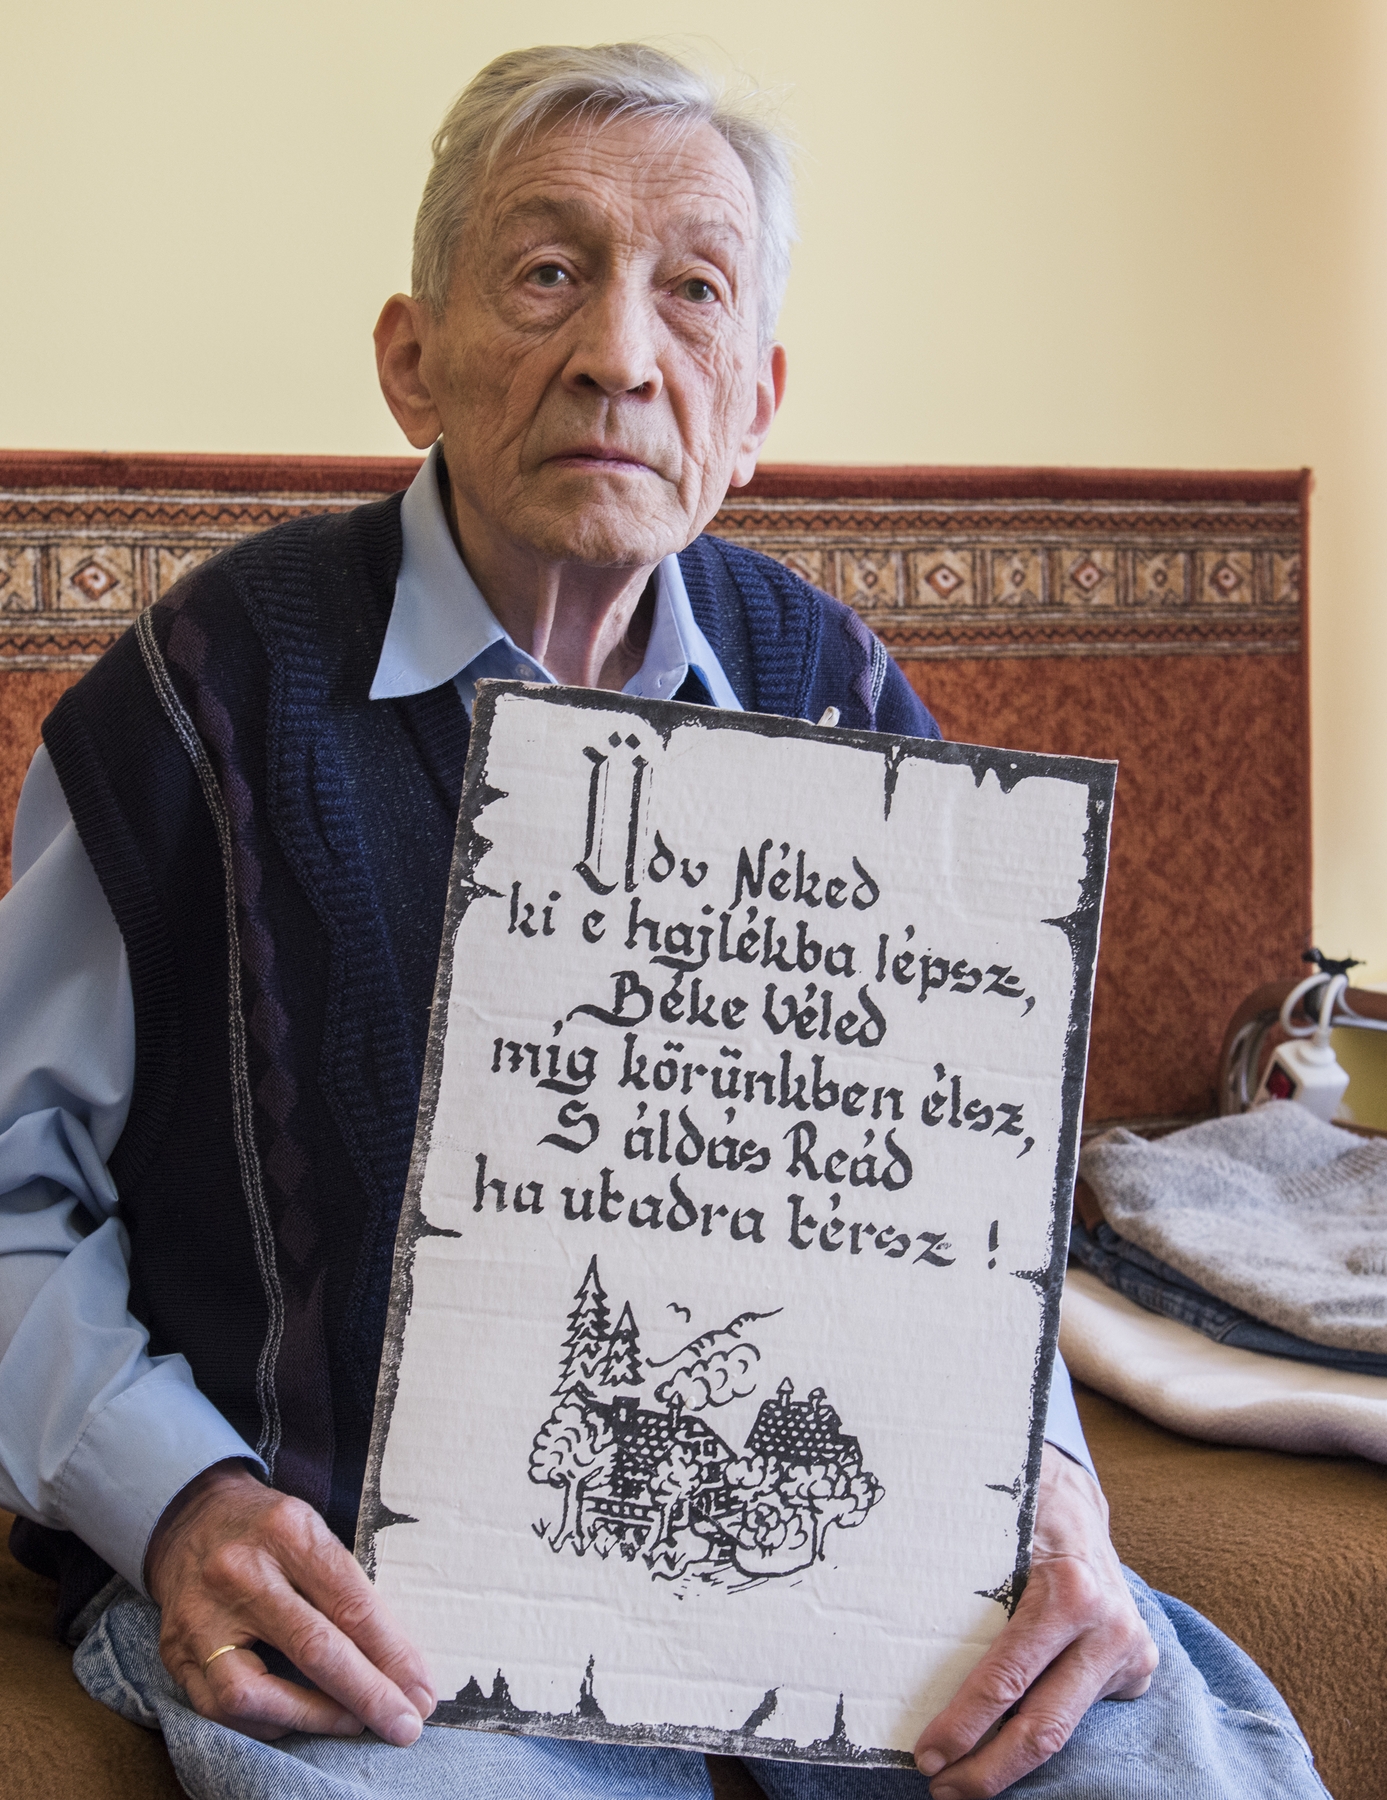 Üdv Néked
ki e hajlékba lépsz,
Béke Véled
míg körünkben élsz,
S áldás Reád
ha utadra térsz !